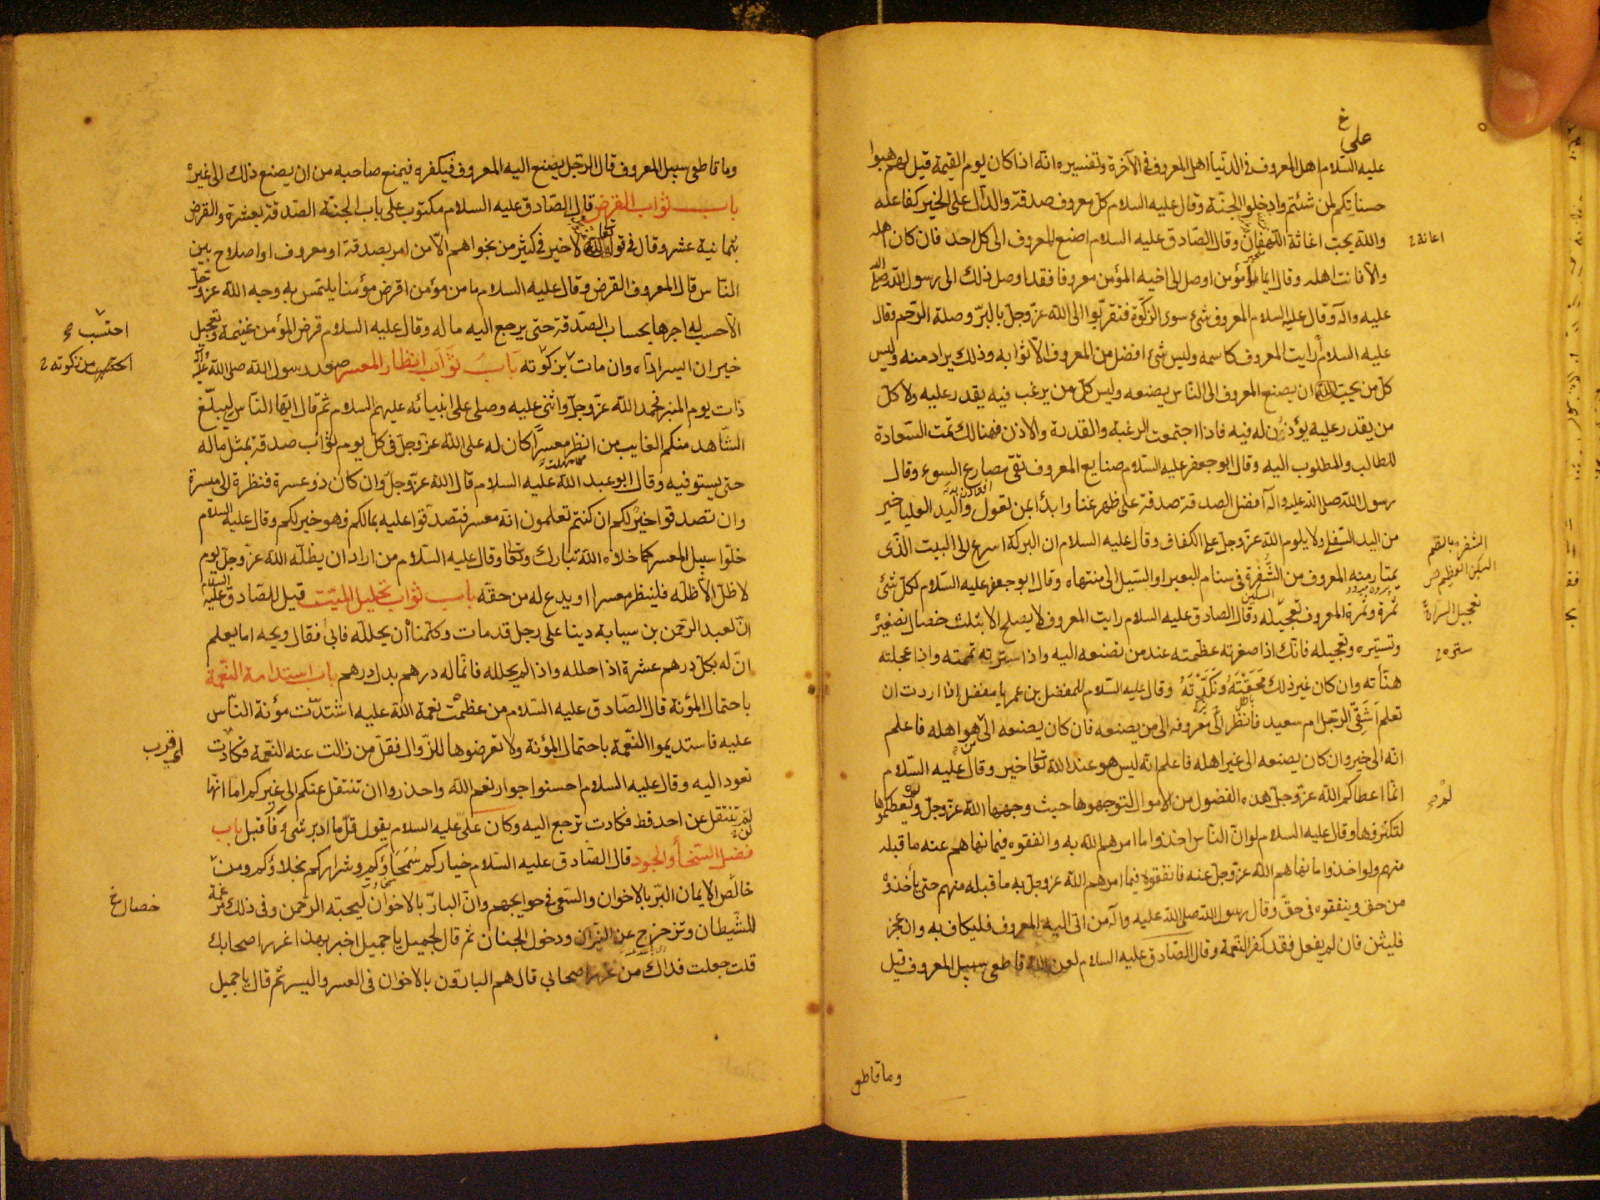 علي
خ
عليه السلام اهل المعروف في الدنيا اهل المعروف في الآخرة وتفسيره انه اذا كان يوم القيمة قيل لهم هبوا
حسناتكم لمن شئتم وادخلوا الجنة وقال عليه السلام كل معروف صدقة والدال على الخير كفاعله
والله يحب اغاثة اللهفان وقال الصادق عليه السلام اصنع المعروف الى كل احد فان كان اهله
اعانة
والا فانت اهله وقال ايما مؤمن اوصل الى اخيه المؤمن معروفا فقد اوصل ذلك الى رسول الله صلى الله
عليه وآله وقال عليه السلام المعروف شئ سوى الزكوة فتقربوا الى الله عز وجل بالبر وصلة الرحم وقال
عليه السلام رايت المعروف كاسمه وليس شئ افضل من المعروف الا ثوابه وذلك يراد منه وليس
كل من يحب ان يصنع المعروف الى الناس يصنعه وليس كل من يرغب فيه يقدر عليه ولا كل
من يقدر عليه يؤذن له فيه فاذا اجتمعت الرغبة والقدرة والاذن فهنالك تمت السعادة
للطالب والمطلوب اليه وقال ابو جعفر عليه السلام صنايع المعروف تقى مصارع السوء وقال
رسول الله صلى الله عليه وآله افضل الصدقة صدقة على ظهر غنا وابدأ بمن تعول واليد العليا خير
من اليد السفلى ولا يلوم الله عز وجل على الكفاف وقال عليه السلام ان البركة اسرع الى البيت الذى
الشفره بالفتح
السكين العظيم ص
يمتار منه المعروف من الشفرة في سنام البعير او السيل الى منتهاه وقال ابو جعفر عليه السلام لكل شئ
ثمرة وثمرة المعروف تعجيله وقال الصادق عليه السلام رايت المعروف لا يصلح الا بثلث خصال تصغيره
تعجيل السراح
وتستيره وتعجيله فانك اذا صغرته عظمته عند من تصنعه اليه واذا سترته تممته واذا عجلته
سترة
هنأته وان كان غير ذلك محقته ونكدته وقال عليه السلام للمفضل بن عمر يا مفضل اذا اردت ان
تعلم اشقي الرجل ام سعيد فانظر الى معروفه الى من يصنعه فان كان يصنعه الى من هو اهله فاعلم
انه الى خير وان كان يصنعه الى غير اهله فاعلم انه ليس هو عند الله تعالى خير وقال عليه السلام
انما اعطاكم الله عز وجل هذه الفضول من الاموال لتوجهوها حيث وجهها الله عز وجل ولم يعطكموها
لتكنزوها وقال عليه السلام لو ان الناس اخذوا ما امرهم الله به وانفقوه فيما نهاهم عنه ما قبله
منهم ولو اخذوا ما نهاهم الله عز وجل عنه فانفقوه فيما امرهم الله عز وجل به ما قبله منهم حتى ياخذوه
من حق وينفقوه في حق وقال رسول الله صلى الله عليه وآله من اتى اليه المعروف فليكاف به وان عجز
فليثن فان لم يفعل فقد كفر النعمة وقال الصادق عليه السلام لعن الله قاطعي سبيل المعروف قيل
وما قاطعي
وما قاطعي سبيل المعروف قال الرجل يصنع اليه المعروف فيكفره فيمنع صاحبه من ان يصنع ذلك الى غيره
باب ثواب القرض قال الصادق عليه السلام مكتوب على باب الجنة الصدقة بعشرة والقرض
بثمانية عشر وقال في قوله تعالى لا خير في كثير من نجواهم الا من امر بصدقة او معروف او اصلاح بين
الناس قال المعروف القرض وقال عليه السلام ما من مؤمن اقرض مؤمنا يلتمس به وجه الله عز وجل
الا حسب له اجرها بحساب الصدقة حتى يرجع اليه ماله وقال عليه السلام قرض المؤمن غنيمة وتعجيل
احتسب
خير ان ايسر اداه وان مات من زكوته باب ثواب انظار المعسر صعد رسول الله صلى الله عليه وآله
احتسب من زكوته
ذات يوم المنبر فحمد الله عز وجل واثنى عليه وصلى على انبيائه عليهم السلام ثم قال ايها الناس ليبلغ
الشاهد منكم الغايب من انظر معسرا كان له على الله عز وجل في كل يوم ثواب صدقة بمثل ماله
حتى يستوفيه وقال ابو عبد الله عليه السلام قال الله عز وجل وان كان ذو عسرة فنظرة الى ميسرة
وان تصدقوا خير لكم ان كنتم تعلمون انه معسر فتصدقوا عليه بمالكم فهو خير لكم وقال عليه السلام
خلوا سبيل المعسر كما خلاه الله تبارك وتعالى وقال عليه السلام من اراد ان يظله الله عز وجل يوم
لا ظل الا ظله فلينظر معسرا او يدع له من حقه باب ثواب تحليل الميت قيل للصادق عليه السلام
ان لعبد الرحمن بن سيابة دينا على رجل قد مات وكلمنا ان يحلله فابى فقال ويحه اما يعلم
ان له بكل درهم عشرة اذا حلله واذا لم يحلله فانما له درهم بدل درهم باب استدامة النعمة
باحتمال المؤنة قال الصادق عليه السلام من عظمت نعمة الله عليه اشتدت مؤنة الناس
عليه فاستديموا النعمة باحتمال المؤنة ولا تعرضوها للزوال فقل من زالت عنه النعمة فكادت
اى قرب
تعود اليه وقال عليه السلام احسنوا جوار نعم الله واحذروا ان تنتقل عنكم الى غيركم اما انها
لم تنتقل عن احد قط فكادت ترجع اليه وكان علي عليه السلام يقول قل ما ادبر شئ فاقبل باب
فضل السخاء والجود قال الصادق عليه السلام خياركم سمحاؤكم وشراركم بخلاؤكم ومن
خالص الايمان البر بالاخوان والسعي في حوايجهم وان البار بالاخوان ليحبه الرحمن وفى ذلك مرغمة
خصال خ
للشيطان وتزحزح عن النيران ودخول الجنان ثم قال لجميل يا جميل اخبر بهذا غرر اصحابك
قلت جعلت فداك من غرر اصحابي قال هم البارون بالاخوان في العسر واليسر ثم قال يا جميل